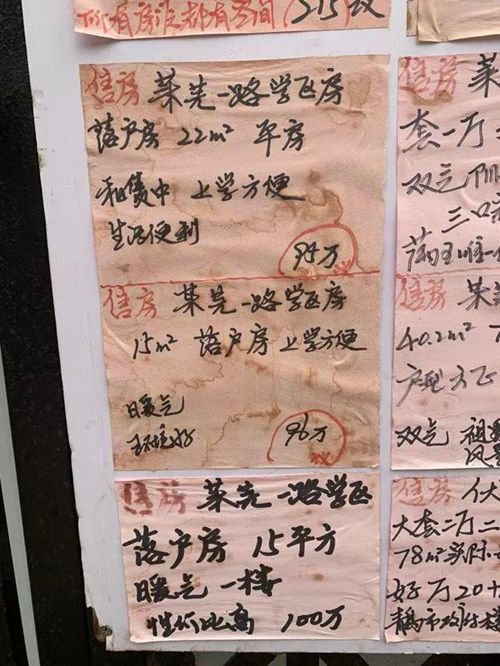 所有房源都有空间 215级
售房 莱芜一路学区房
落户房 22m² 平房
租赁中 上学方便
生活便利
95万
售房 莱芜一路学区房
15m² 落户房 上学方便
暖气
环境好
96万
售房 莱芜一路学区
落户房 15平方
暖气 一楼
性价比高 100万
售房
套一厅
双气
三口
售房 莱
40.2m²
户型方正
双气
风景
售房
大套二厅二
78m²实际
好厅20+